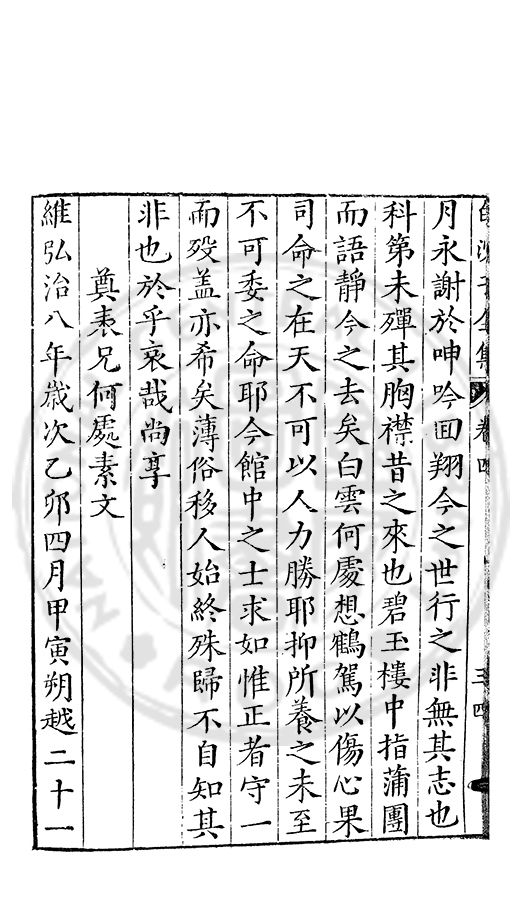 全集 卷四
月永謝於呻吟回翔今之世行之非無其志也
科第未殫其胸襟昔之來也碧玉樓中指蒲團
而語靜今之去矣白雲何處想鶴駕以傷心果
司命之在天不可以人力勝耶抑所養之未至
不可委之命耶今館中之士求如惟正者守一
而歿盖亦希矣薄俗移人始終殊歸不自知其
非也於乎哀哉尚享
奠表兄何處素文
維弘治八年歲次乙卯四月甲寅朔越二十一